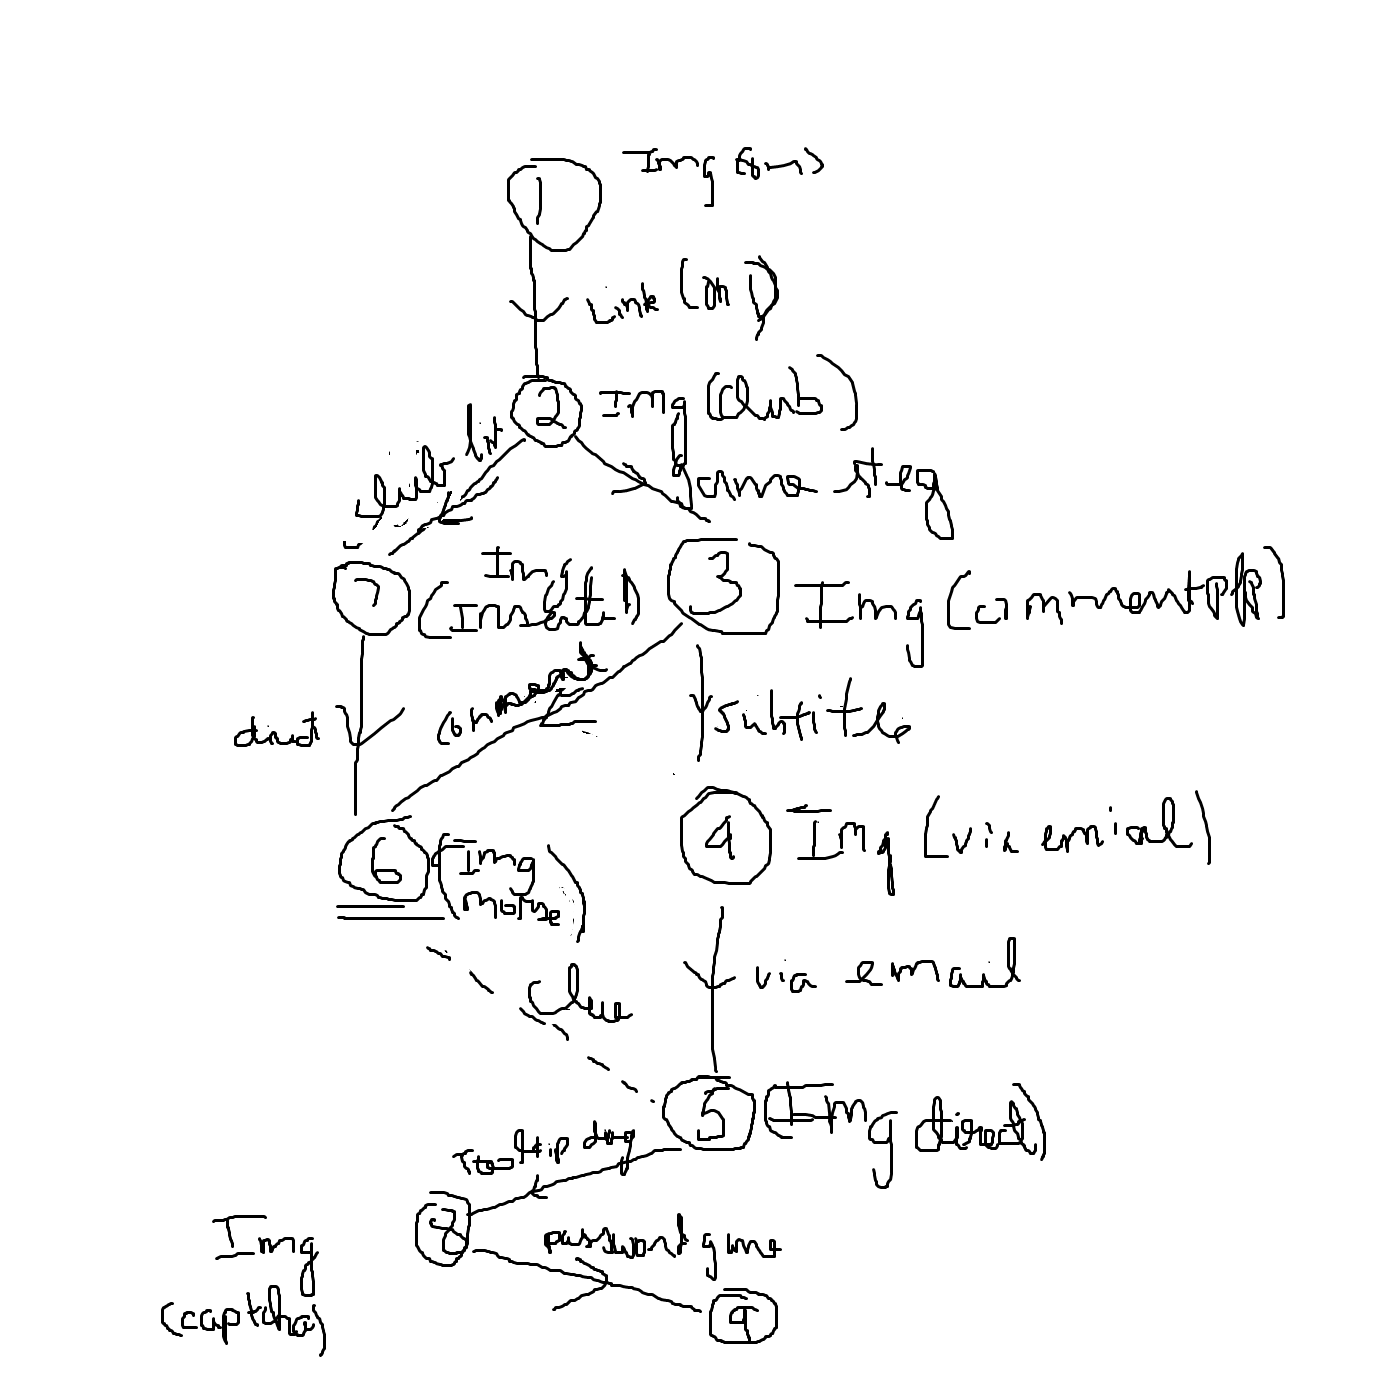 1
Img
Link (on 1)
2 Img (club)
club list
game steg
7
Img
(insta)
3
Img (comment pfp)
comment
subtitle
direct
6
(Img
morse)
4
Img (via emial)
via email
clue
5
(Img direct)
tooltip dwg
8
Img
(captcha)
password game
9